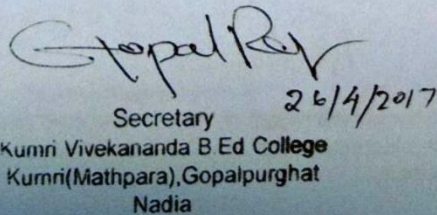 Gopal Roy
26/4/2017
Secretary
Kumri Vivekananda B Ed College
Kumri(Mathpara),Gopalpurghat
Nadia